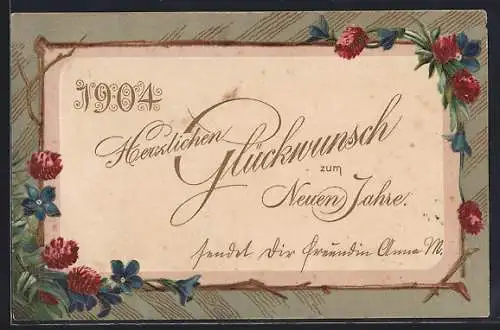 1904
Herzlichen
Glückwunsch
zum
Neuen Jahre.
sendet Dir Freundin Anna M.